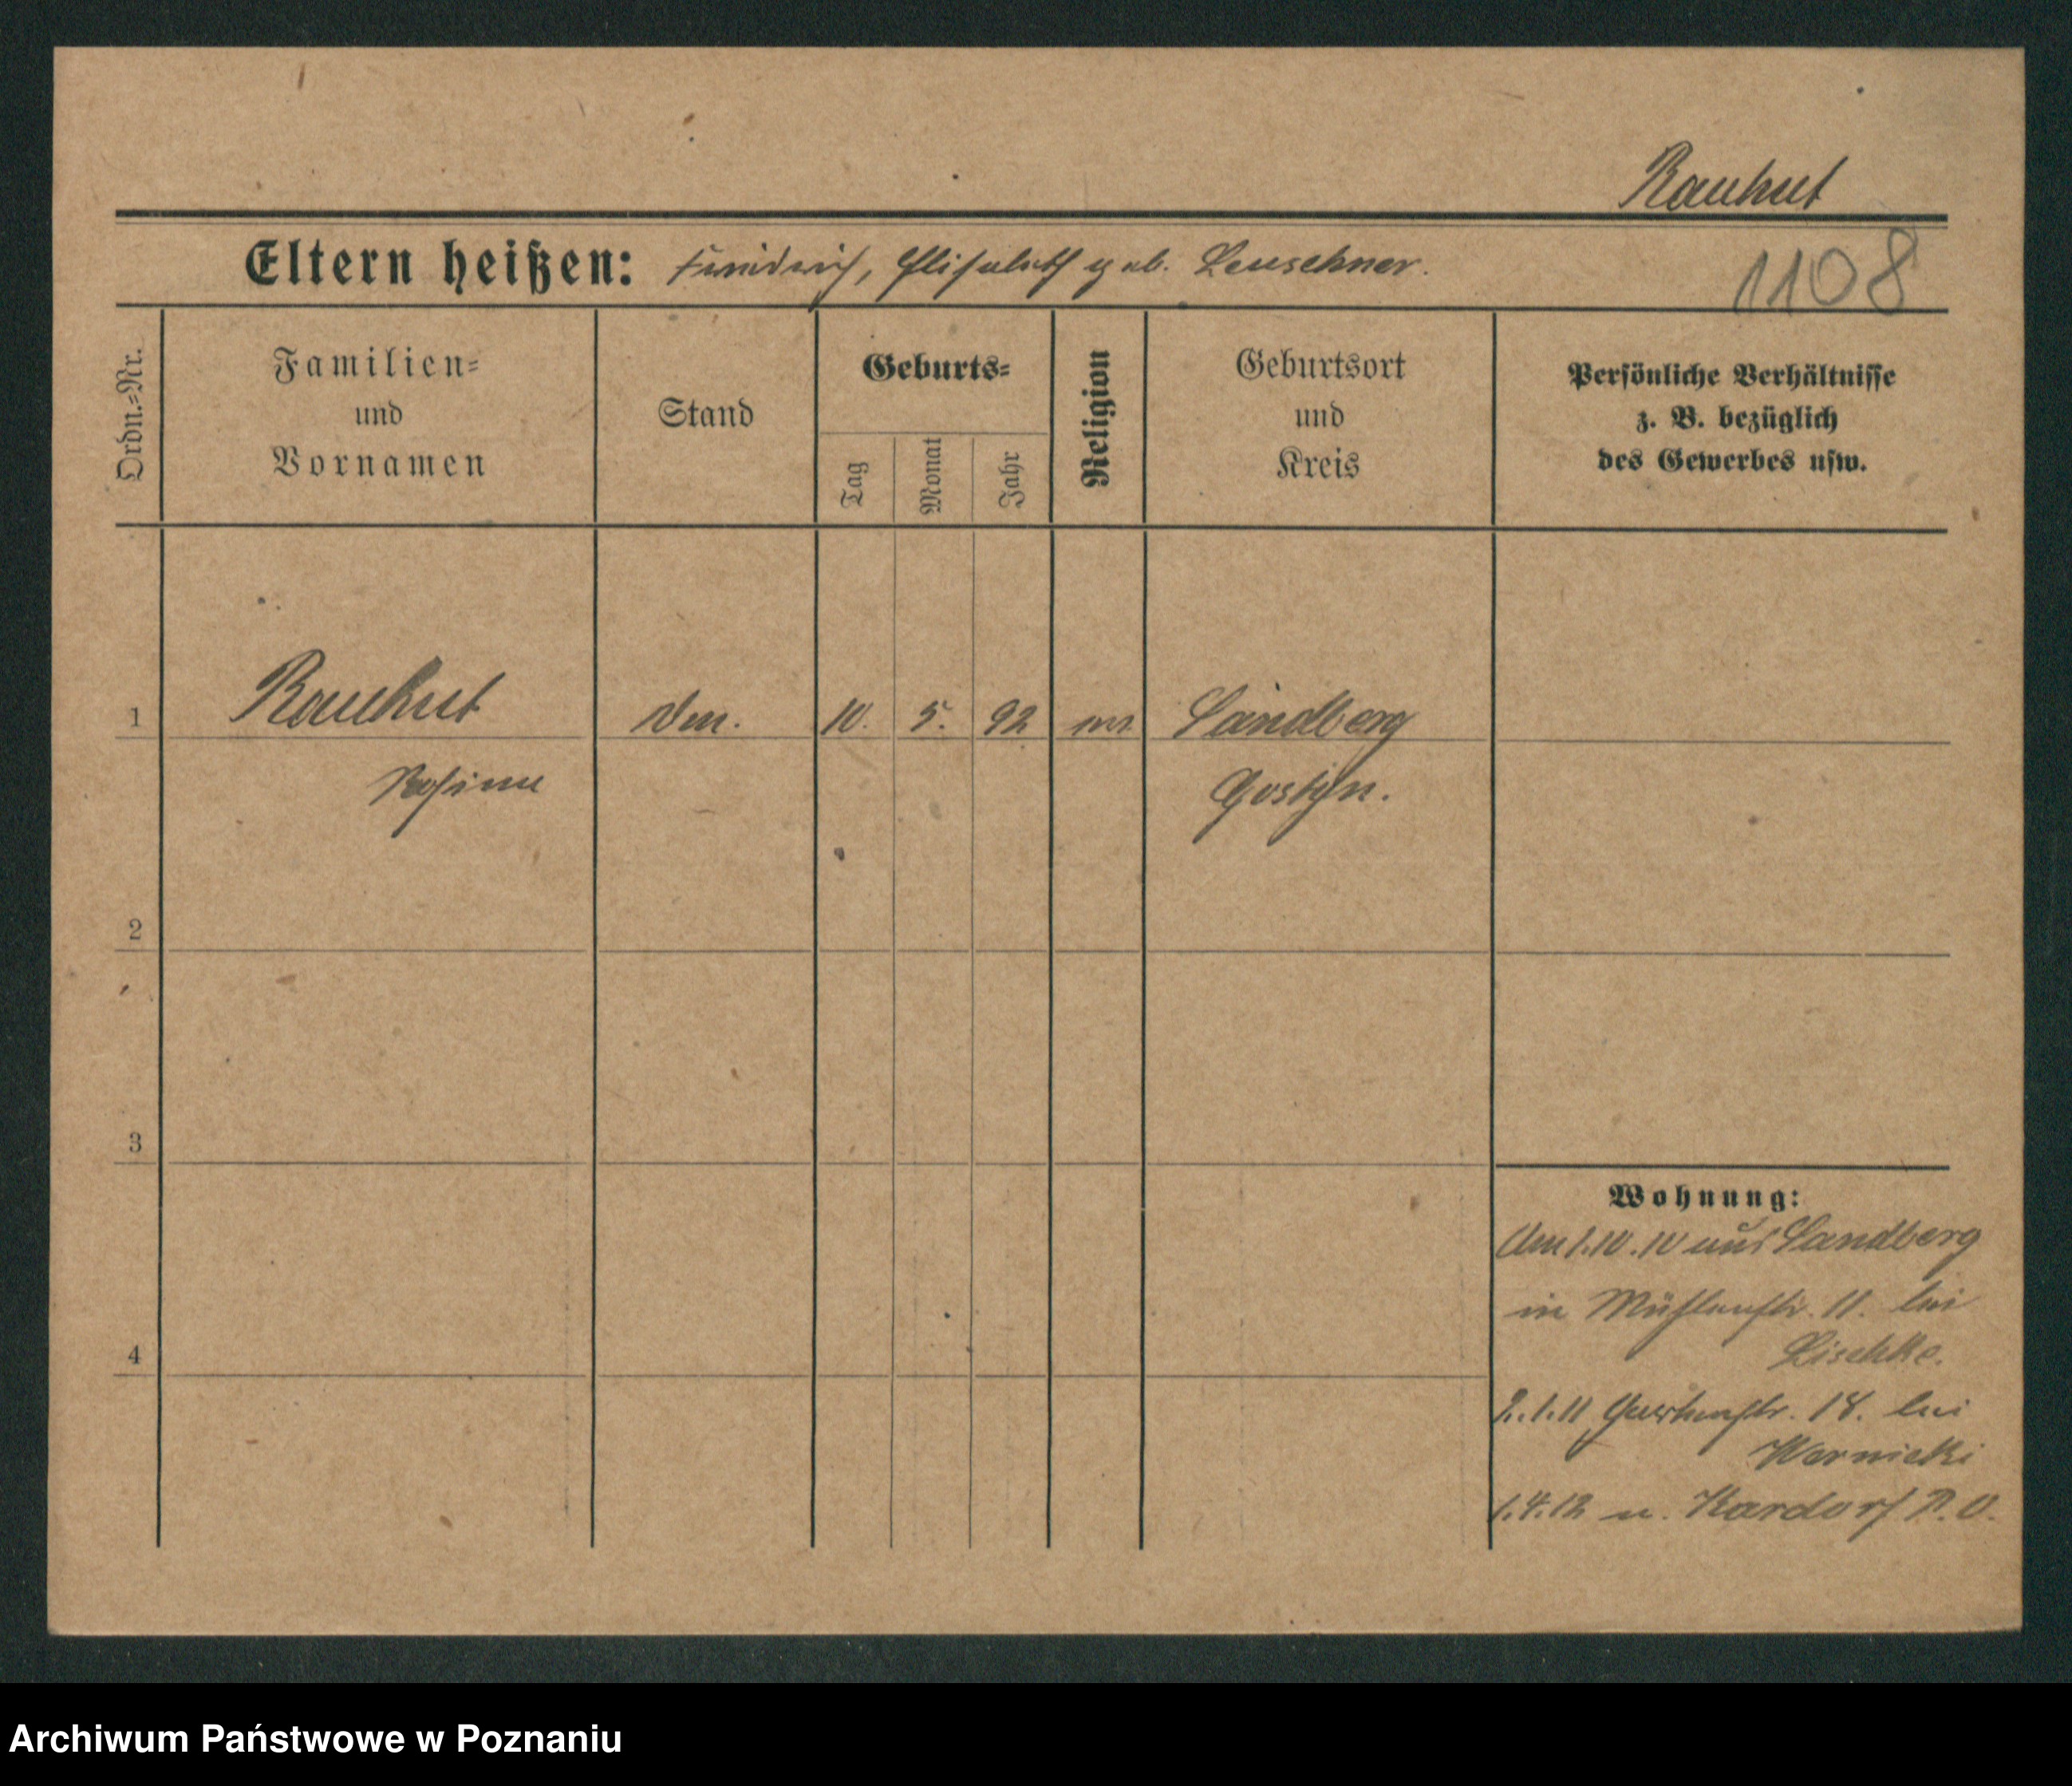 Rauhut
Eltern heißen: Friedrich, Elisabeth geb. Leuschner.
1108
Ordn.=Nr.
Familien=
und
Vornamen
Stand
Geburts=
Tag
Monat
Jahr
Religion
Geburtsort
und
Kreis
Persönliche Verhältnisse
z. B. bezüglich
des Gewerbes usw.
1 Rauhut 10. 5. 92 Sandberg
Rosina Gostyn.
2
3
Wohnung:
Am 1.10.10 aus Sandberg
in Mühlenstr. 11. bei
Lischke.
4
2.1.11 Gartenstr. 18. bei
Wernicki
1.4.12 n. Kardorf P. O.
Archiwum Państwowe w Poznaniu